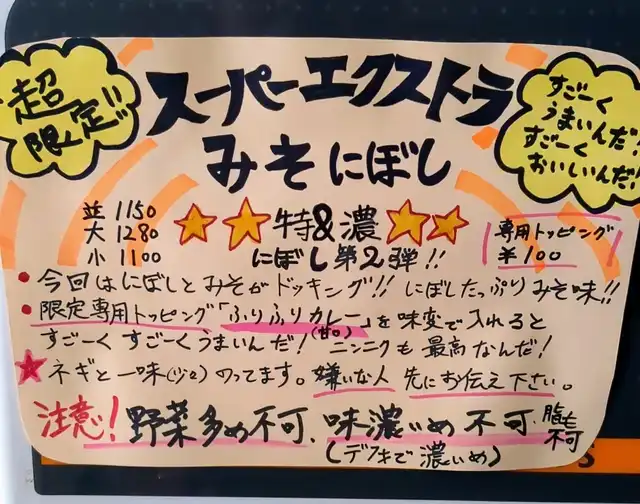 超
限定!!
スーパーエクストラ
みそにぼし
すごーく
うまいんだ!
すごーく
おいしいんだ!!
並 1150
大 1280
小 1100
特&濃
にぼし第2弾!!
専用トッピング
¥100
・今回はにぼしとみそがドッキング!! にぼしたっぷりみそ味!!
・限定専用トッピング「ふりふりカレー」を味変で入れると
(甘口)
すごーくすごーくうまいんだ! ニンニクも最高なんだ!
★ネギと一味(少々)のってます。嫌いな人先にお伝え下さい。
注意! 野菜多め不可、味濃いめ不可、脂も
不可
(デフォで濃いめ)
S